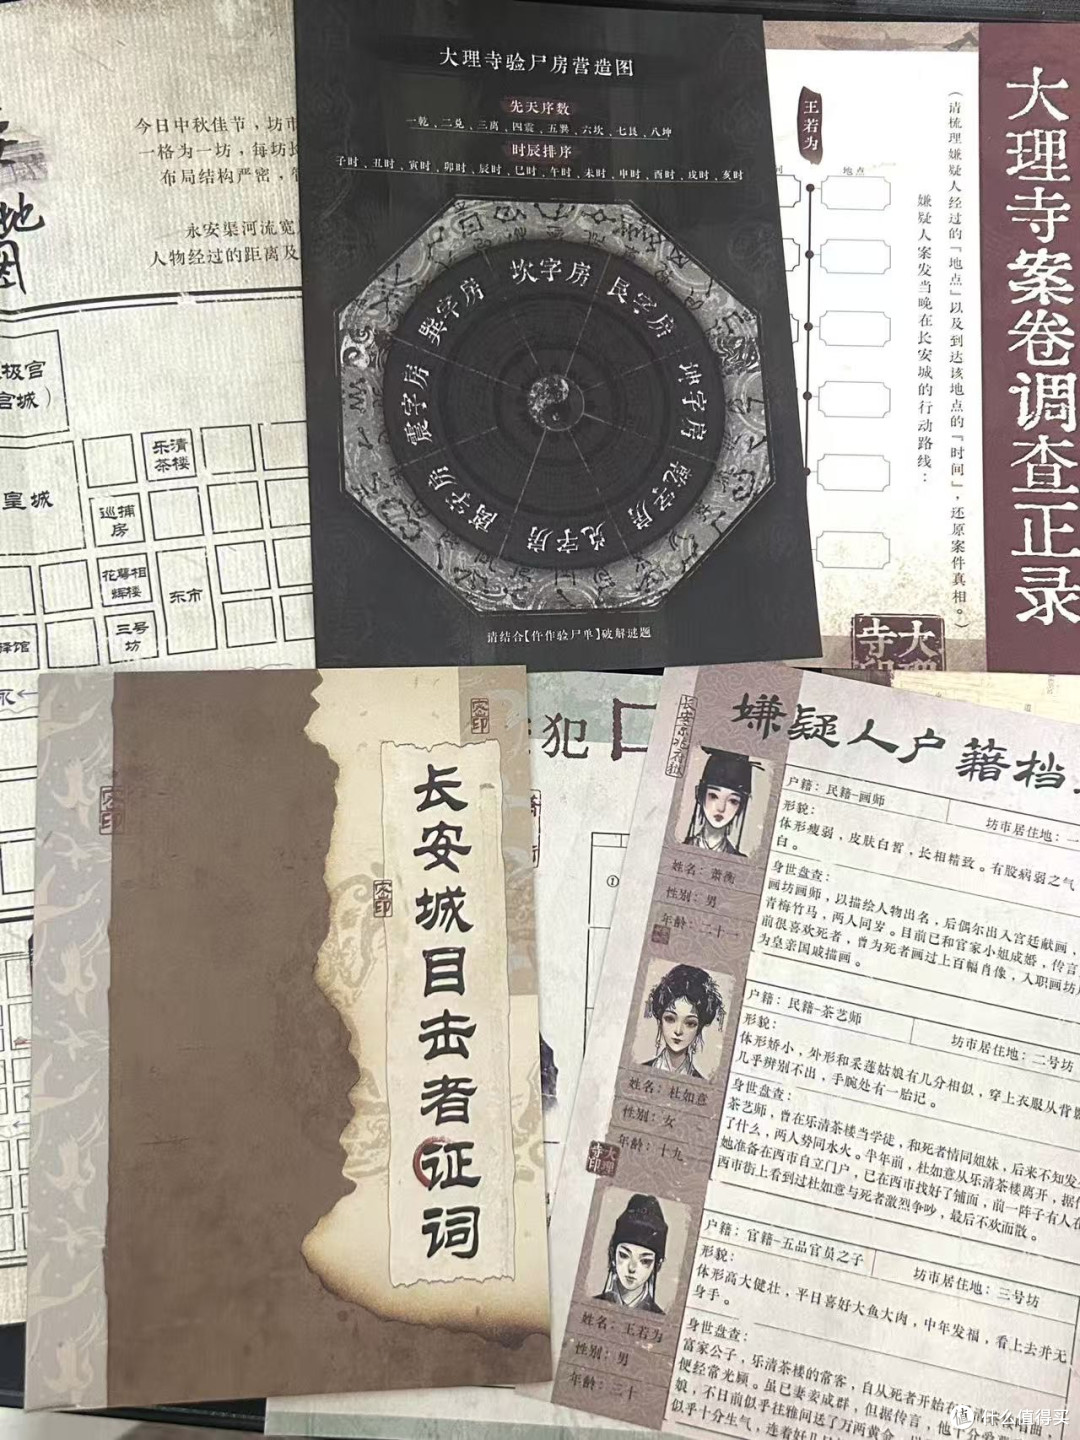 今日中秋佳节，坊市
一格为一坊，每坊长
布局结构严密，管
永安渠河流宽
人物经过的距离及
地图
极宫
宫城）
皇城
乐清
茶楼
巡捕
房
花萼相
辉楼
东市
三号
坊
驿馆
大理寺验尸房营造图
先天序数
一乾、二兑、三离、四震、五巽、六坎、七艮、八坤
时辰排序
子时、丑时、寅时、卯时、辰时、巳时、午时、未时、申时、酉时、戌时、亥时
坎字房
艮字房
坤字房
乾字房
兑字房
离字房
震字房
巽字房
请结合【仵作验尸单】破解谜题
大理寺案卷调查正录
（请梳理嫌疑人经过的『地点』以及到达该地点的『时间』，还原案件真相。）
嫌疑人案发当晚在长安城的行动路线：
王若为
间
地点
大理
寺印
长安城目击者证词
密印
密印
密印
犯
①
嫌疑人户籍档
户籍：民籍-画师
坊市居住地：二
形貌：
体形瘦弱，皮肤白皙，长相精致。有股病弱之气
白。
身世盘查：
画坊画师，以描绘人物出名，后偶尔出入宫廷献画，
青梅竹马，两人同岁。目前已和官家小姐成婚，传言
前很喜欢死者，曾为死者画过上百幅肖像，入职画坊
为皇亲国戚描画。
姓名：萧衡
性别：男
年龄：二十一
户籍：民籍-茶艺师
坊市居住地：二号坊
形貌：
体形娇小，外形和采莲姑娘有几分相似，穿上衣服从背影
几乎辨别不出，手腕处有一胎记。
身世盘查：
茶艺师，曾在乐清茶楼当学徒，和死者情同姐妹，后来不知发
了什么，两人势同水火。半年前，杜如意从乐清茶楼离开，据
她准备在西市自立门户，已在西市找好了铺面，前一阵子有人在
西市街上看到过杜如意与死者激烈争吵，最后不欢而散。
姓名：杜如意
性别：女
年龄：十九
大理
寺印
户籍：官籍-五品官员之子
坊市居住地：三号坊
形貌：
体形高大健壮，平日喜好大鱼大肉，中年发福，看上去并无
身手。
身世盘查：
富家公子，乐清茶楼的常客，自从死者开始在清楼唱曲，
便经常光顾。虽已妻妾成群，但据传言，他十分爱
娘，不日前似乎往雅间送了万两黄金，
似乎十分生气，连着好几
姓名：王若为
性别：男
年龄：三十
什么值得买